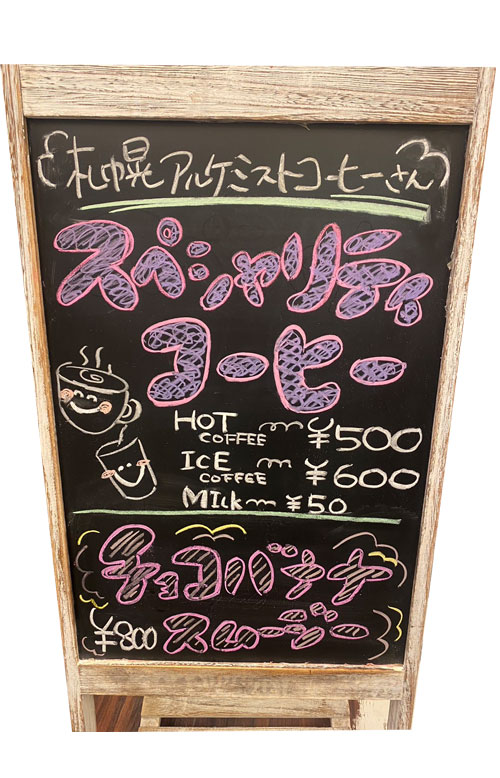 札幌アルケミストコーヒーさん
スペシャリティ
コーヒー
HOT COFFEE ¥500
ICE COFFEE ¥600
MILK ¥50
チョコバナナ
¥800 スムージー